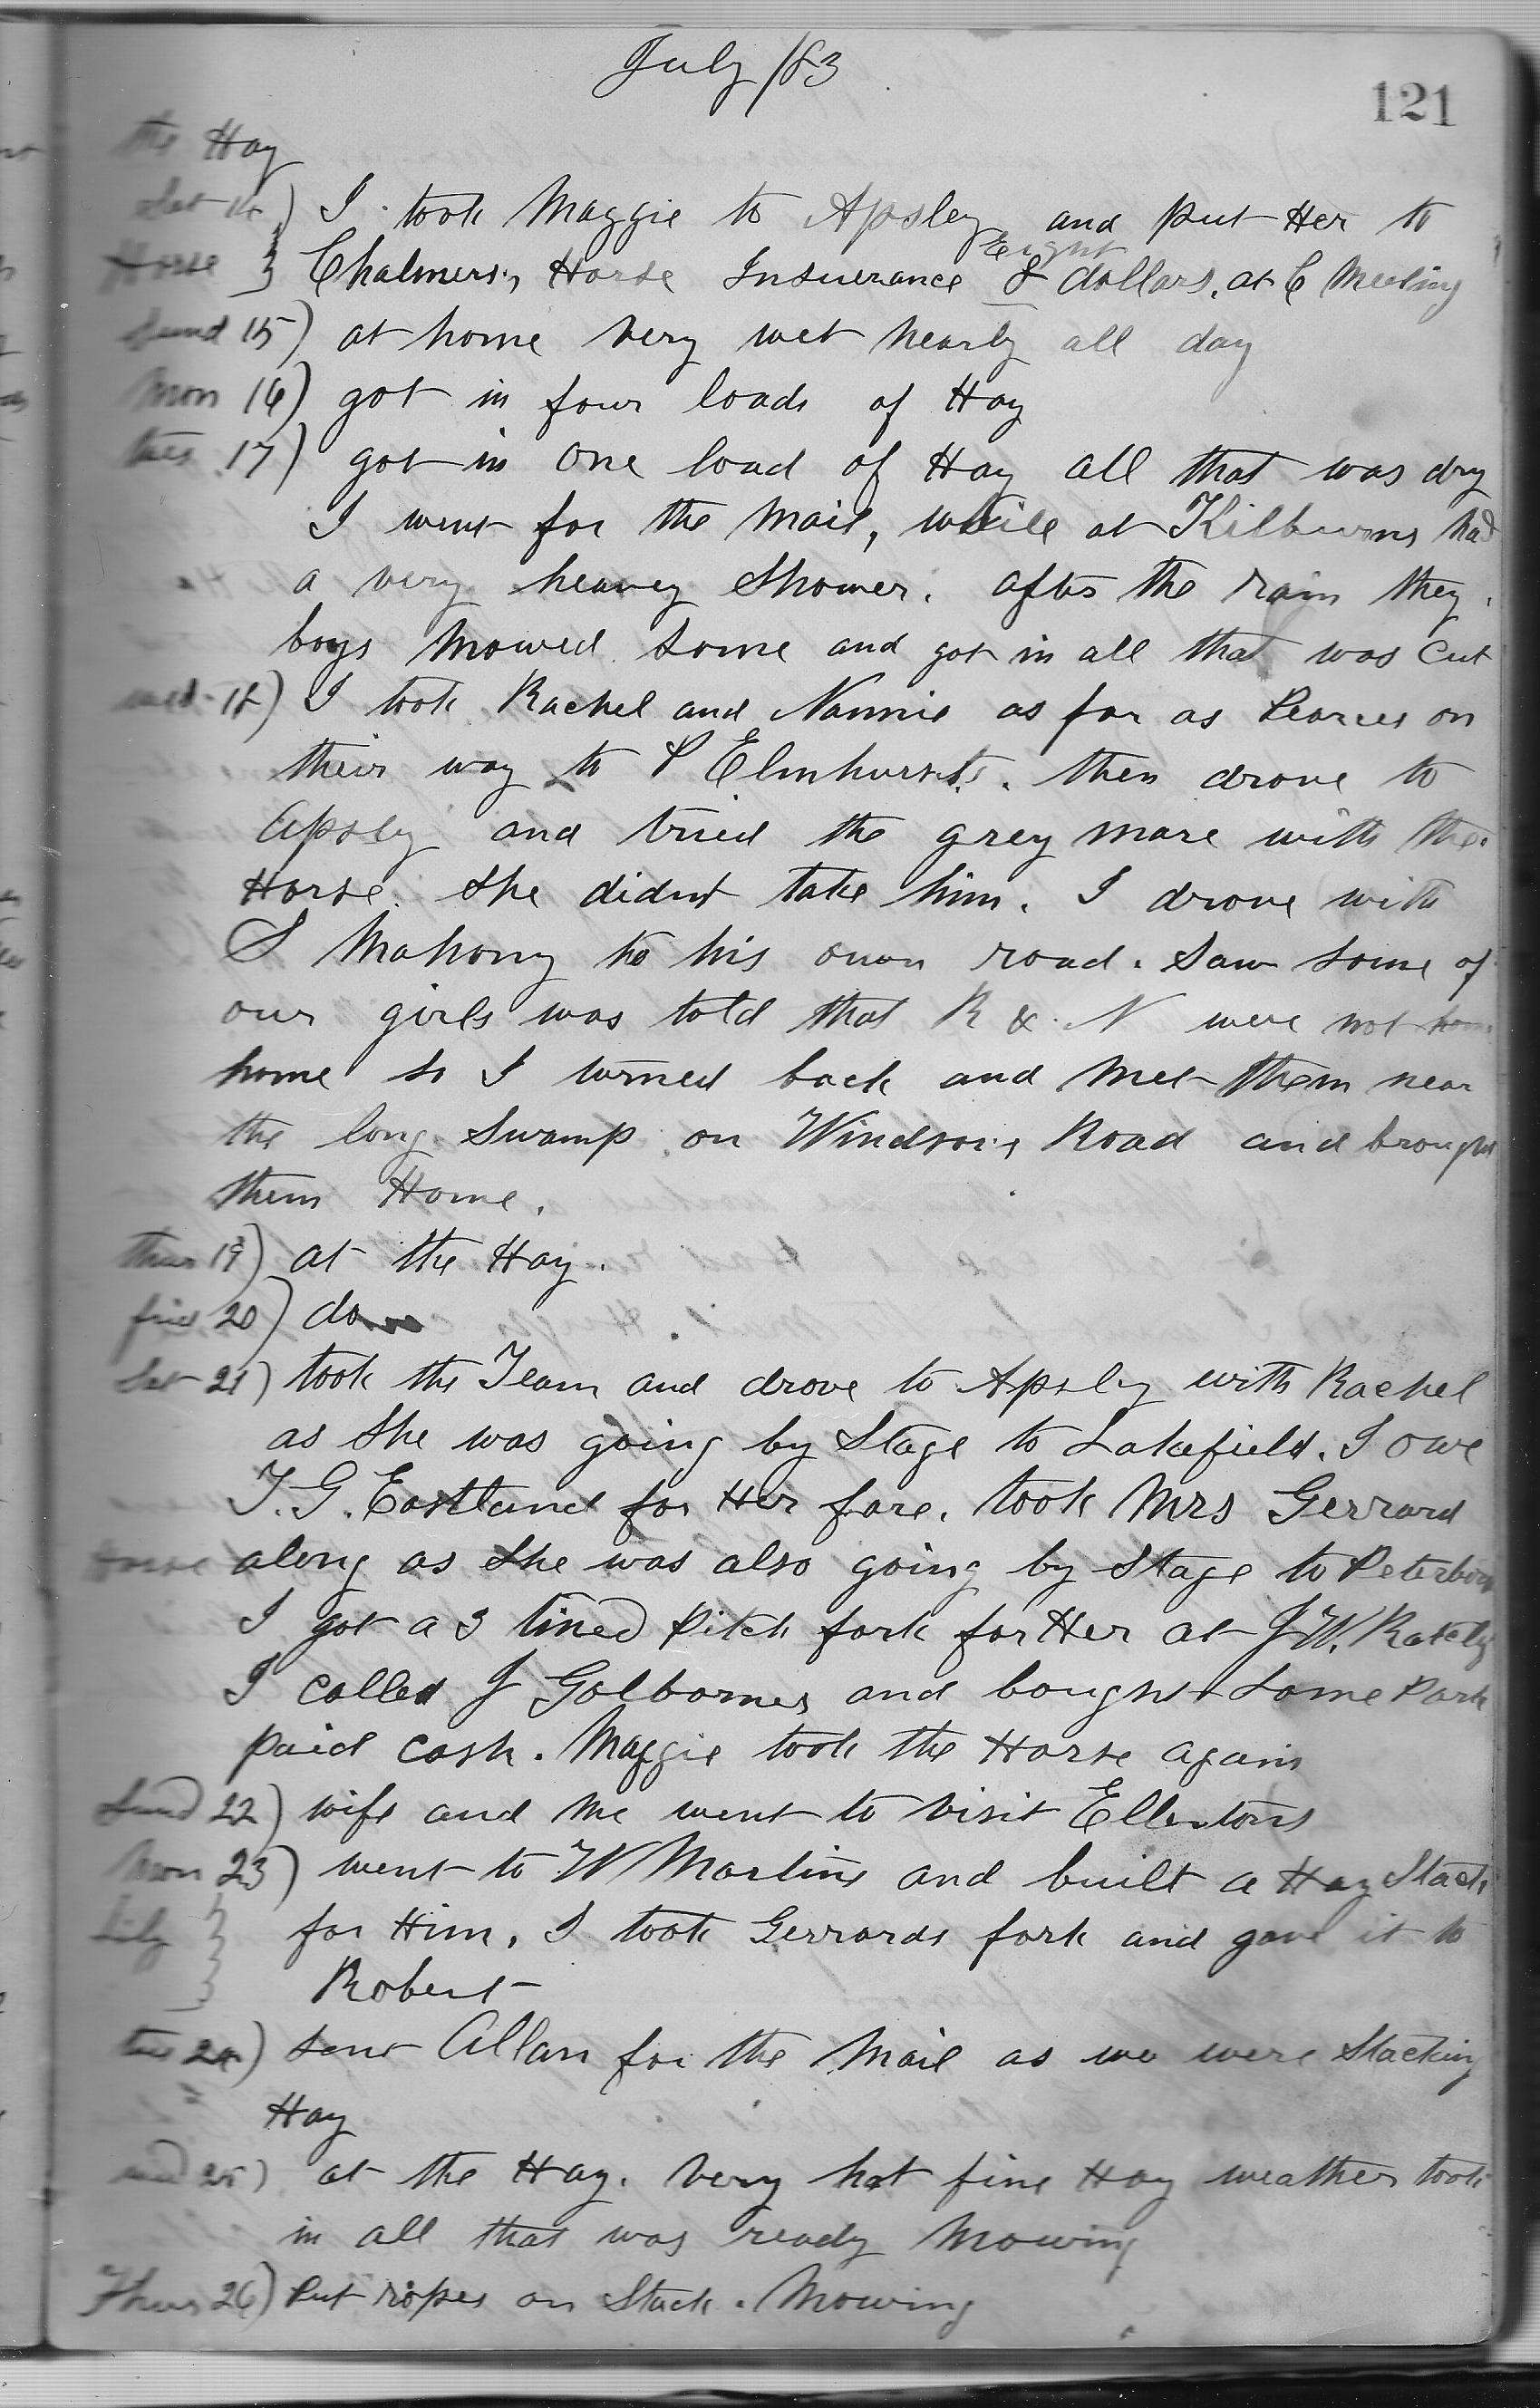 July /83
121
the Hay
Sat 14) I took Maggie to Apsley and put Her to
Eight
Horse } Chalmers, Horse Insuerance 8 dollars. at C Meeting
Sund 15) at home very wet nearly all day
Mon 16) got in four loads of Hay
tues 17) got in one load of Hay all that was dry
I went for the Mail, while at Kilburns had
a very heavey Shower. after the rain they
boys Mowed some and got in all that was cut
wed 18) I took Rachel and Nannie as far as Pearces on
their way to P Elmhursts. then drove to
Apsley and tried the grey mare with the
Horse. She didnt take him. I drove with
S Mahony to his own road. Saw some of
our girls was told that R & N were not
home so I turned back and Met them near
the long Swamp on Windsors Road and brought
them Home.
thur 19) at the Hay.
frid 20) do
Sat 21) took the Team and drove to Apsley with Rachel
as She was going by Stage to Lakefield. I owe
T.G. Eastland for Her fare. took Mrs Gerrard
Horse along as She was also going by Stage to Peterboro
I got a 3 tined Pitch fork for Her at J W.
I called J Golbornes and bought Some Pork
paid cash. Maggie took the Horse again
Sund 22) wife and Me went to visit Ellentons
Mon 23) went to W Martins and built a Hay Stack
Lily } for Him. I took Gerrards fork and gave it to
Robert
tue 24) sent Allan for the Mail as we were Stacking
Hay
wed 25) at the Hay. Very hot fine Hay weather took
in all that was ready Mowing
Thur 26) Put ropes on Stack. Mowing